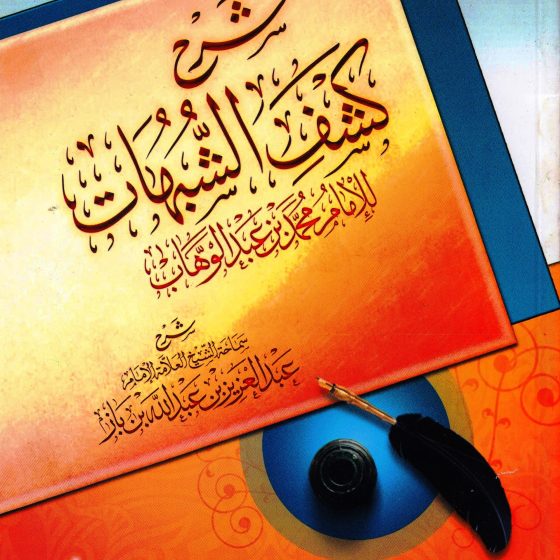 شرح
كشف الشبهات
للإمام محمد بن عبد الوهاب
شرح
سماحة الشيخ العلامة الإمام
عبد العزيز بن عبد الله بن باز